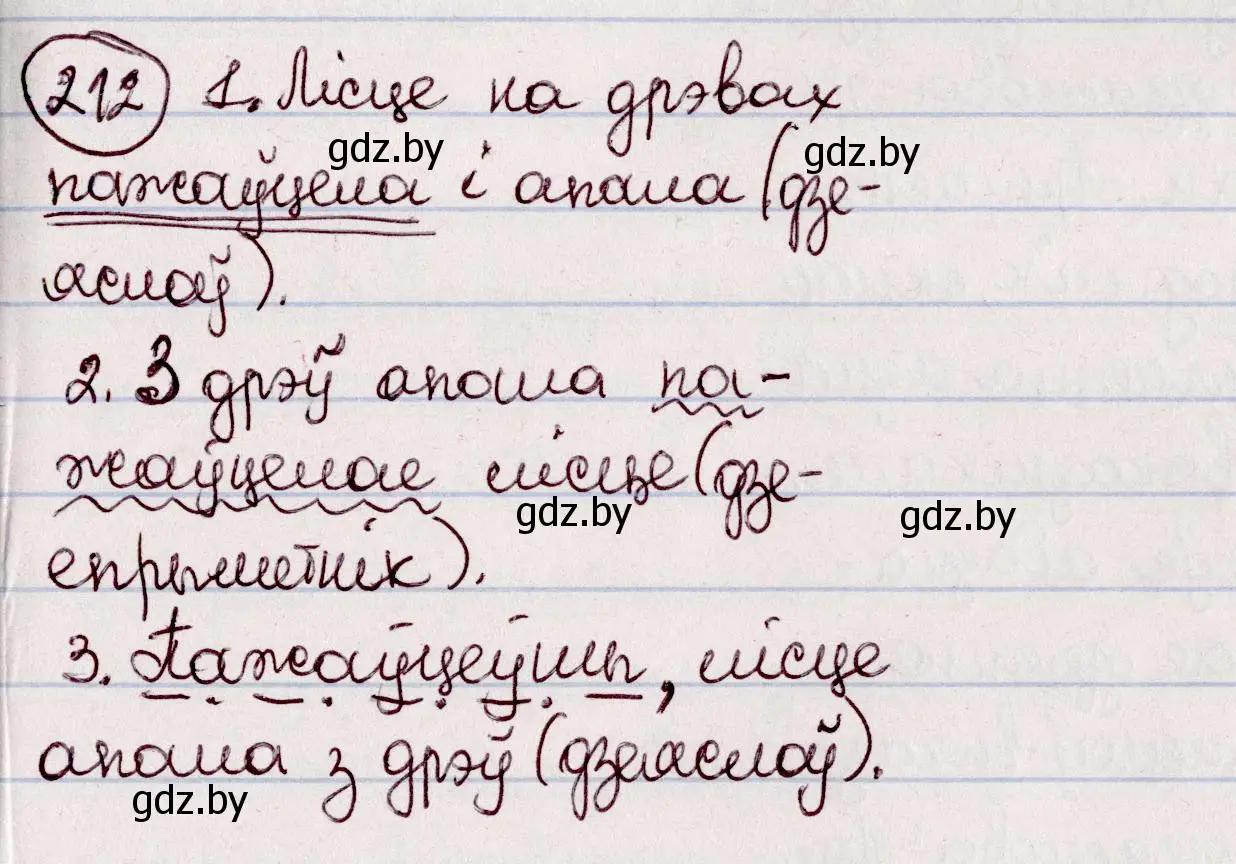 212 1. Лісце на дрэвах
gdz.by gdz.by
пажаўцела і апала (дзе-
яслоў).
2. З дрэў апала па-
жаўцелае лісце (дзе-
gdz.by gdz.by
епрыметнік).
3. Пажаўцеўшы, лісце
апала з дрэў (дзеяслоў).
gdz.by